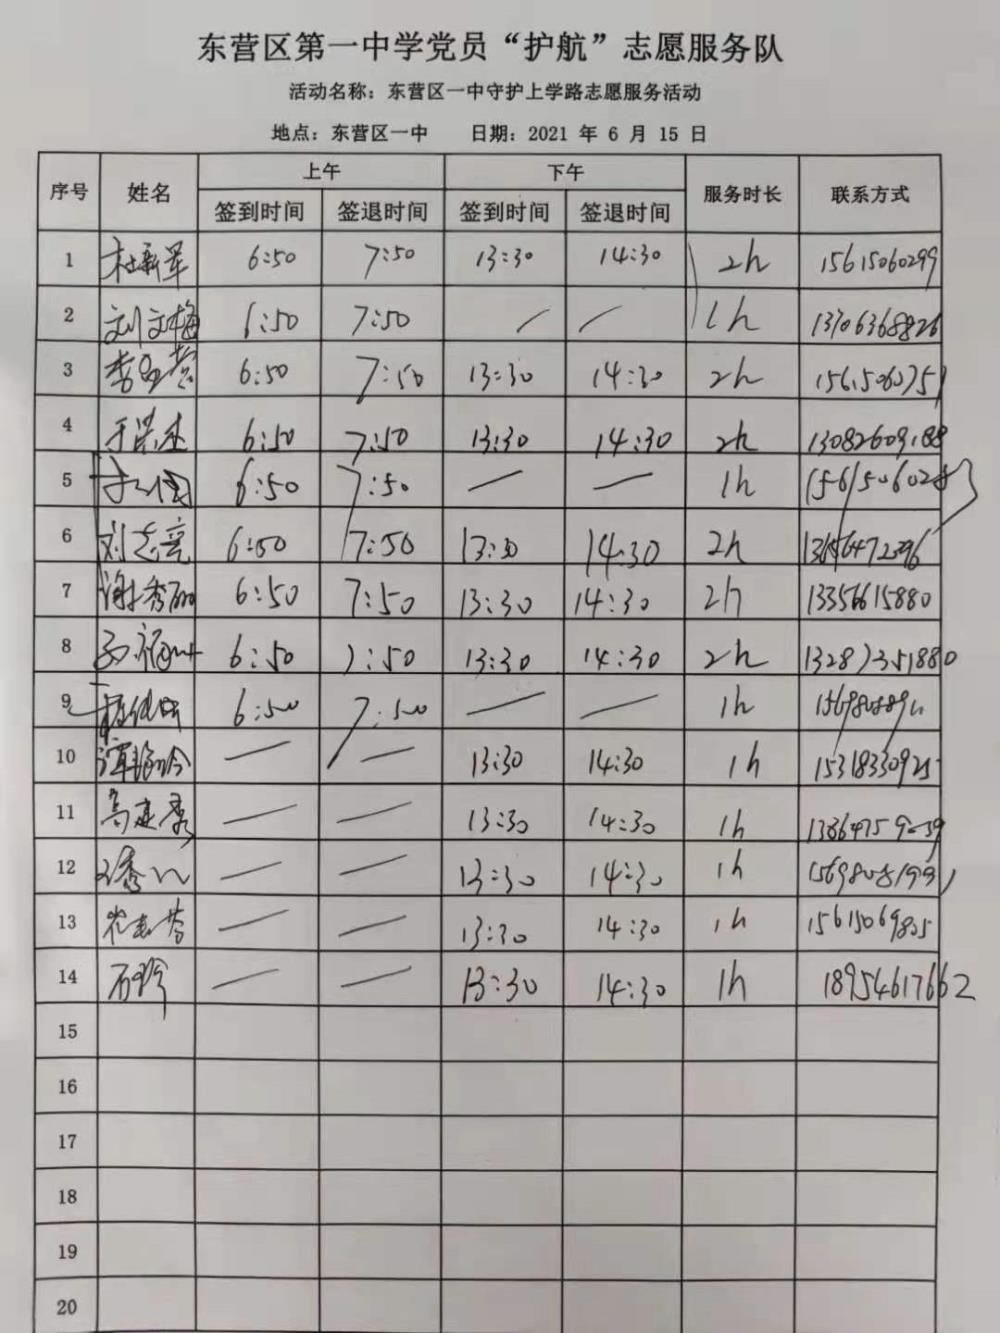 东营区第一中学党员“护航”志愿服务队
活动名称：东营区一中守护上学路志愿服务活动
地点：东营区一中 日期：2021 年 6 月 15 日
序号 姓名 上午 下午 服务时长 联系方式
签到时间 签退时间 签到时间 签退时间
1 杜新军 6:50 7:50 13:30 14:30 2h 15615060299
2 刘文梅 6:50 7:50 — — 1h 13706368826
3 6:50 7:50 13:30 14:30 2h
4 6:50 7:50 13:30 14:30 2h 13082609188
5 6:50 7:50 — — 1h
6 刘志亮 6:50 7:50 13:30 14:30 2h
7 谢秀丽 6:50 7:50 13:30 14:30 2h 13356615880
8 6:50 7:50 13:30 14:30 2h 13287351880
9 6:50 7:50 — — 1h
10 — — 13:30 14:30 1h 15318330925
11 高建秀 — — 13:30 14:30 1h
12 — — 13:30 14:30 1h
13 — — 13:30 14:30 1h 15615069805
14 石玲 — — 13:30 14:30 1h 18954617662
15
16
17
18
19
20